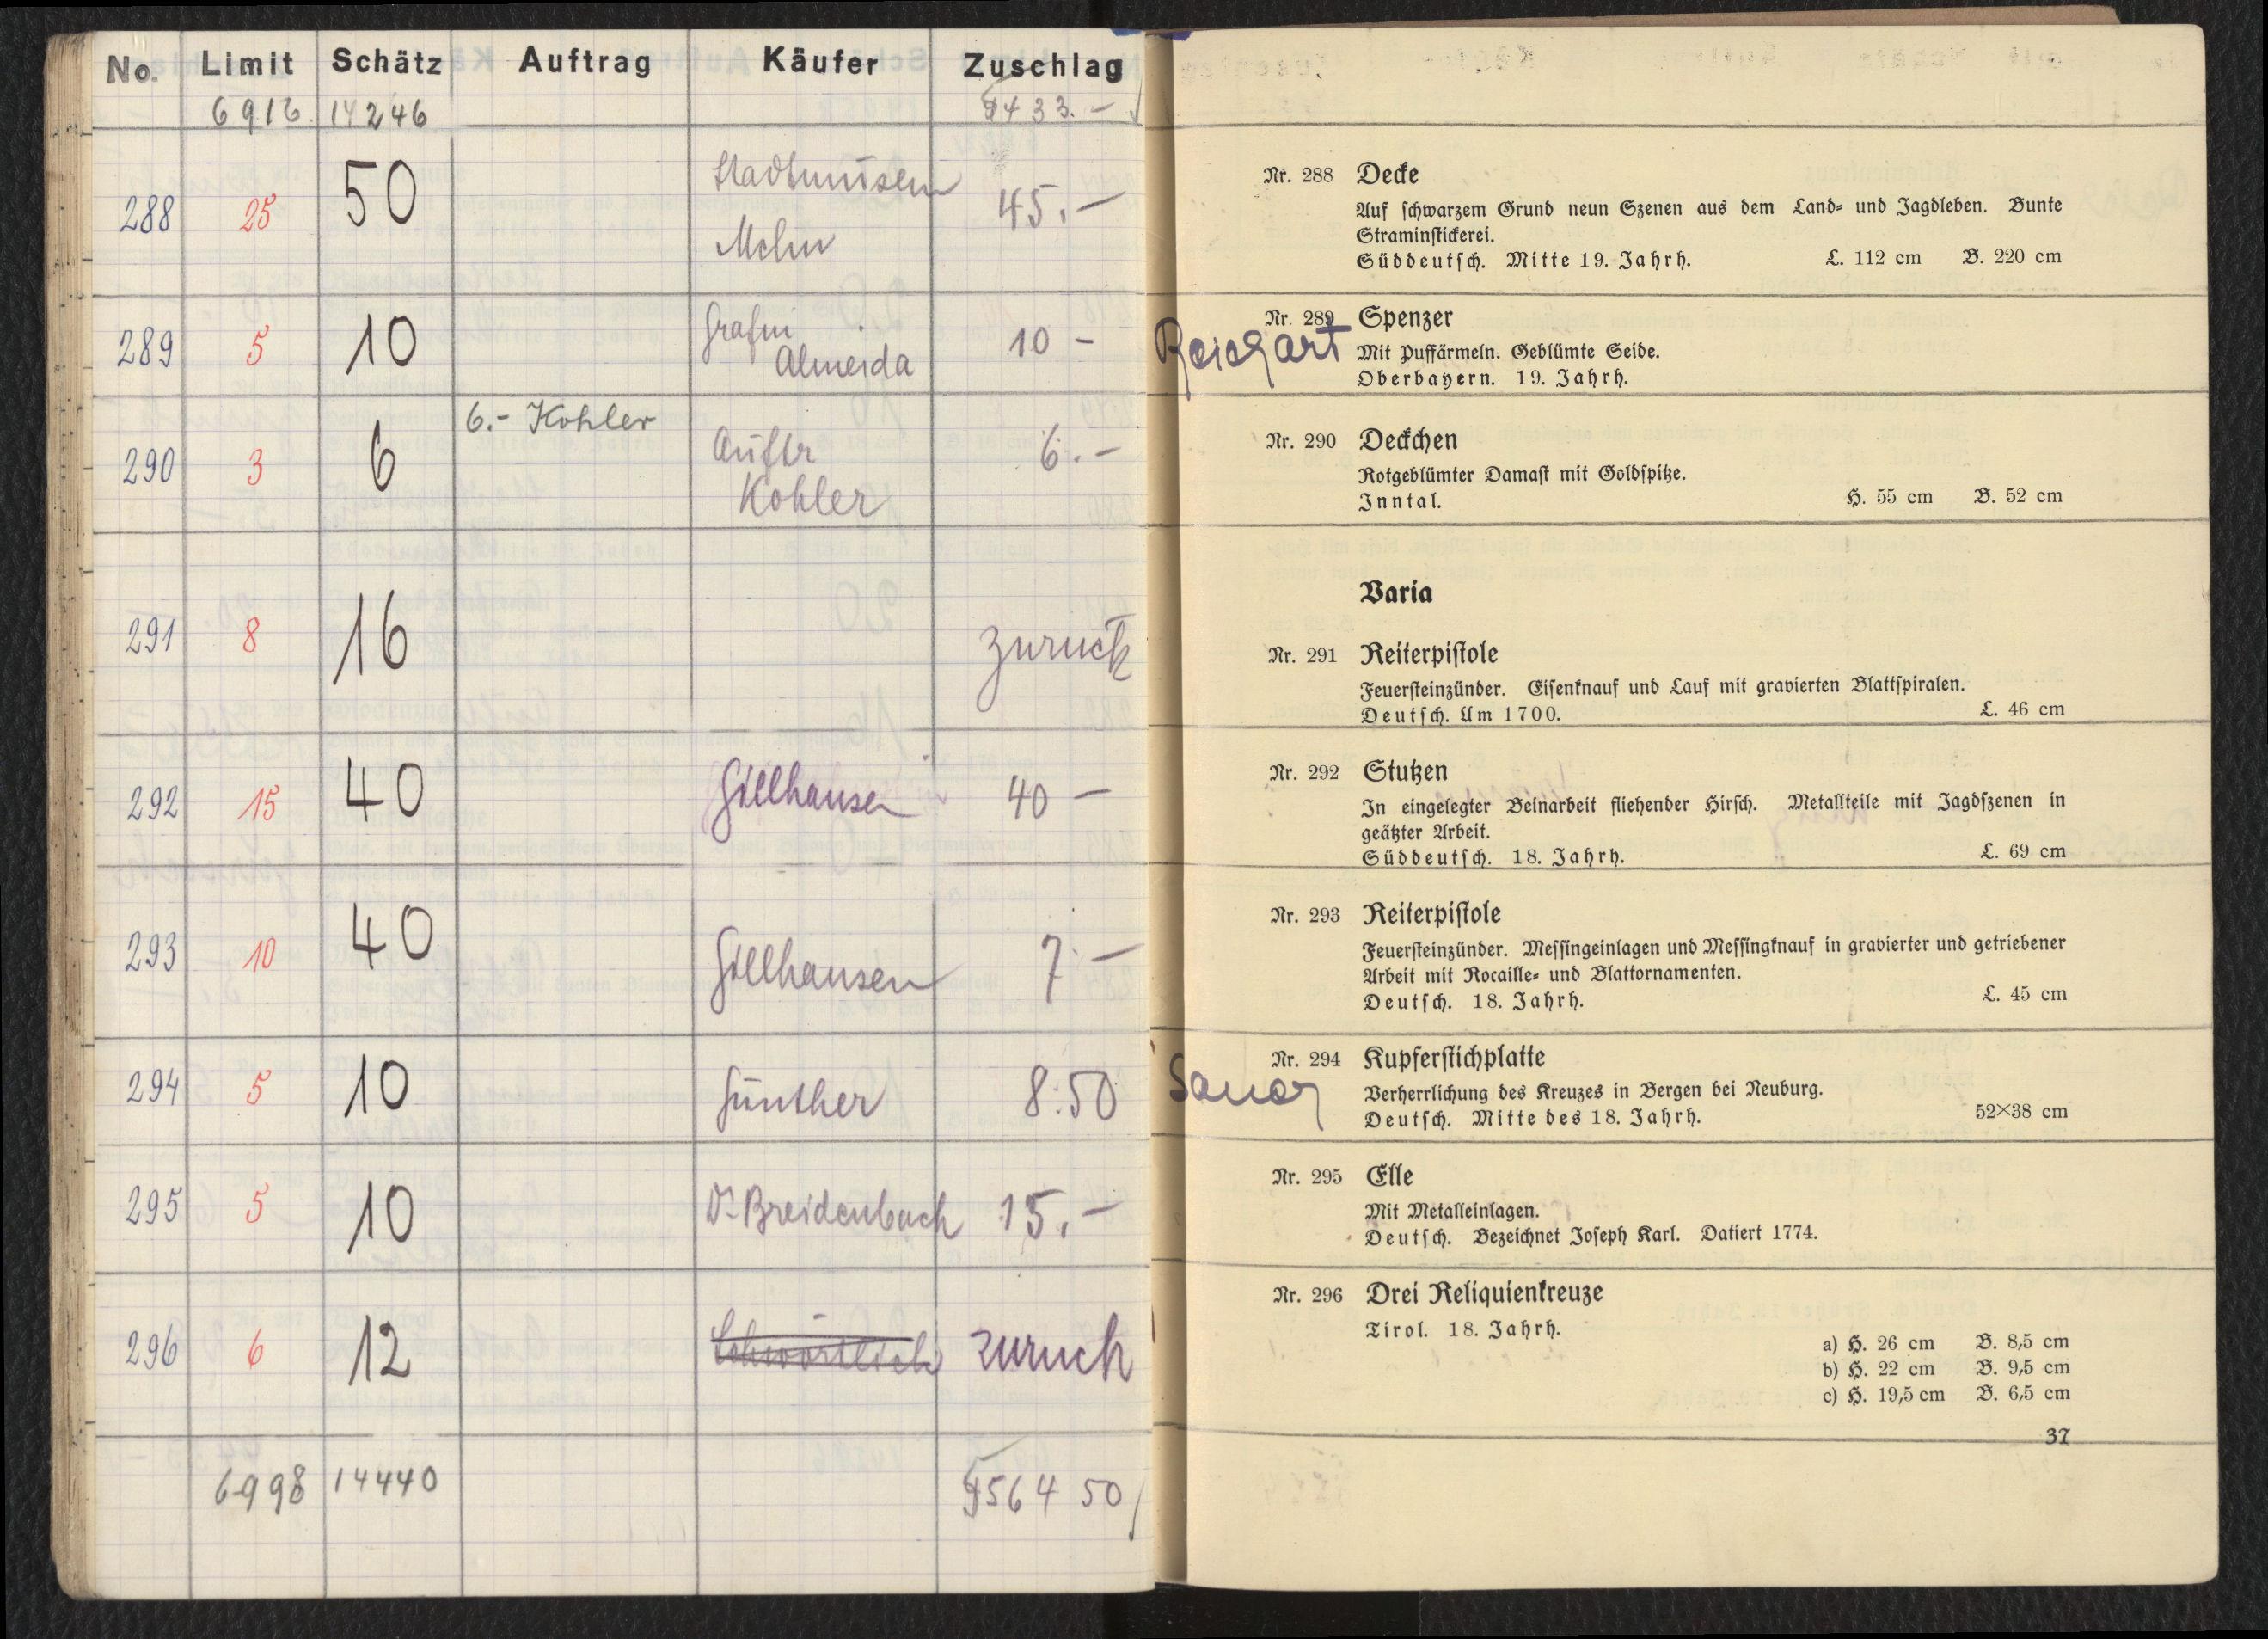 No. Limit Schätz Auftrag Käufer Zuschlag
6916. 14246 9433.–
288 25 50 Stadtmuseum 45.–
289 5 10 Gräfin Almeida 10 –
290 3 6 6.– Kohler Auftr Kohler 6.–
291 8 16 zurück
292 15 40 Gillhausen 40 –
293 10 40 Gillhausen 7.–
294 5 10 Günther 8.50
295 5 10 Dr. Breidenbach 15.–
296 6 12 zurück
6998 14440 9564 50
Nr. 288 Decke
Auf schwarzem Grund neun Szenen aus dem Land- und Jagdleben. Bunte
Straminstickerei.
Süddeutsch. Mitte 19. Jahrh. L. 112 cm B. 220 cm
Nr. 289 Spenzer
Mit Puffärmeln. Geblümte Seide.
Oberbayern. 19. Jahrh.
Nr. 290 Deckchen
Rotgeblümter Damast mit Goldspitze.
Inntal. H. 55 cm B. 52 cm
Varia
Nr. 291 Reiterpistole
Feuersteinzünder. Eisenknauf und Lauf mit gravierten Blattspiralen.
Deutsch. Um 1700. L. 46 cm
Nr. 292 Stutzen
In eingelegter Beinarbeit fliehender Hirsch. Metallteile mit Jagdszenen in
geätzter Arbeit.
Süddeutsch. 18. Jahrh. L. 69 cm
Nr. 293 Reiterpistole
Feuersteinzünder. Messingeinlagen und Messingknauf in gravierter und getriebener
Arbeit mit Rocaille- und Blattornamenten.
Deutsch. 18. Jahrh. L. 45 cm
Nr. 294 Kupferstichplatte
Verherrlichung des Kreuzes in Bergen bei Neuburg.
Deutsch. Mitte des 18. Jahrh. 52×38 cm
Nr. 295 Elle
Mit Metalleinlagen.
Deutsch. Bezeichnet Joseph Karl. Datiert 1774.
Nr. 296 Drei Reliquienkreuze
Tirol. 18. Jahrh.
a) H. 26 cm B. 8,5 cm
b) H. 22 cm B. 9,5 cm
c) H. 19,5 cm B. 6,5 cm
37